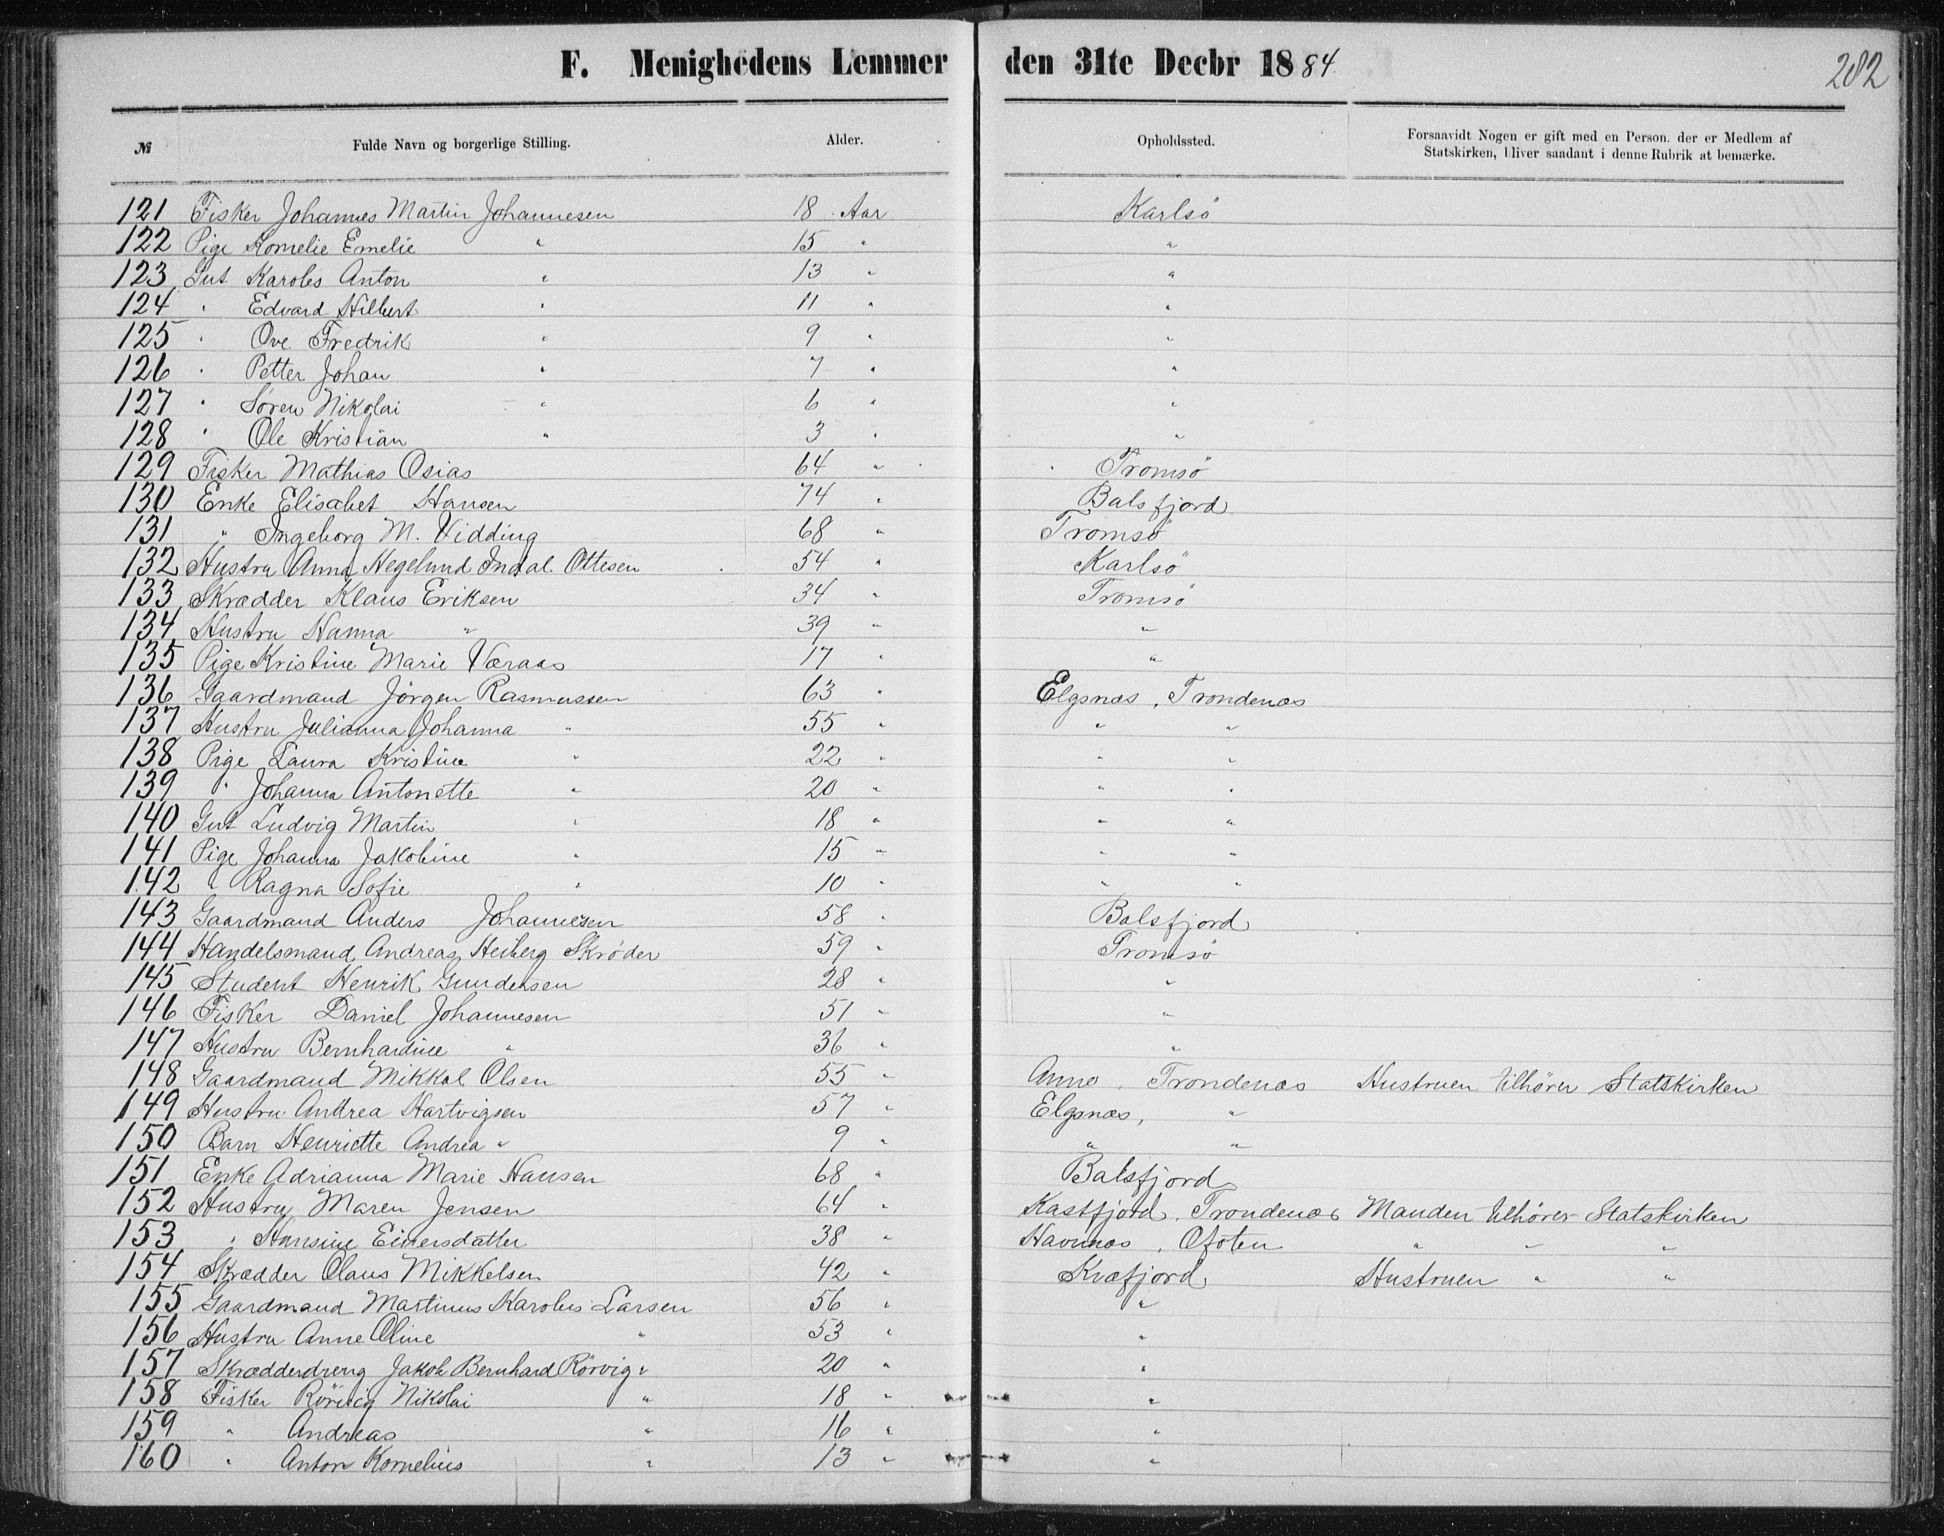 F. Menighedens Lemmer den 31te Decbr 1884.
282
№ Fulde Navn og borgerlige Stilling. Alder. Opholdssted. Forsaavidt Nogen er gift med en Person, der er Medlem af
Statskirken, bliver saadant i denne Rubrik at bemærke.
121 Fisker Johannes Martin Johannesen 18 Aar Karlsö
122 Pige Kornelie Emelie " 15 " "
123 Gut Karoles Anton " 13 " "
124 " Edvard Hilbert " 11 " "
125 " Ove Fredrik " 9 " "
126 " Petter Johan " 7 " "
127 " Søren Nikolai " 6 " "
128 " Ole Kristian " 3 " "
129 Fisker Mathias Osias 64 " Tromsö
130 Enke Elisabet Hansen 74 " Balsfjord
131 " Ingeborg M. Vidding 68 " Tromsö
132 Hustru Anna Hegelund Indal Ottesen 54 " Karlsö
133 Skrædder Klaus Eriksen 34 " Tromsö
134 Hustru Hanna " 39 " "
135 Pige Kristine Marie Væraas 17 " "
136 Gaardmand Jörgen Rasmussen 63 " Elgsnæs, Trondenæs
137 Hustru Julianna Johanna " 55 " " "
138 Pige Laura Kristine " 22 " " "
139 " Johanna Antonette " 20 " " "
140 Gut Ludvig Martin " 18 " " "
141 Pige Johanna Jakobine " 15 " " "
142 " Ragna Sofie " 10 " " "
143 Gaardmand Anders Johannesen 58 " Balsfjord
144 Handelsmand Andreas Heiberg Skrøder 59 " Tromsö
145 Student Henrik Gundersen 28 " "
146 Fisker Daniel Johannesen 51 " "
147 Hustru Bernhardine " 36 " "
148 Gaardmand Mikkal Olsen 55 " Annø, Trondenæs Hustruen tilhörer Statskirken
149 Hustru Andrea Hartvigsen 57 " Elgsnæs, "
150 Barn Henriette Andrea " 9 " " "
151 Enke Adrianna Marie Hansen 68 " Balsfjord
152 Hustru Maren Jensen 64 " Kastfjord, Trondenæs Manden tilhörer Statskirken
153 " Hansine Einersdatter 38 " Havnnæs, Ofoten " " "
154 Skrædder Olaus Mikkelsen 42 " Kvæfjord Hustruen " "
155 Gaardmand Martinus Karolus Larsen 56 " "
156 Hustru Anne Oline " 53 " "
157 Skrædderdreng Jakob Bernhard Rörvig " 20 " "
158 Fisker Rörvig Nikolai " 18 " "
159 " Andreas " 16 " "
160 " Anton Kornelius " 13 " "